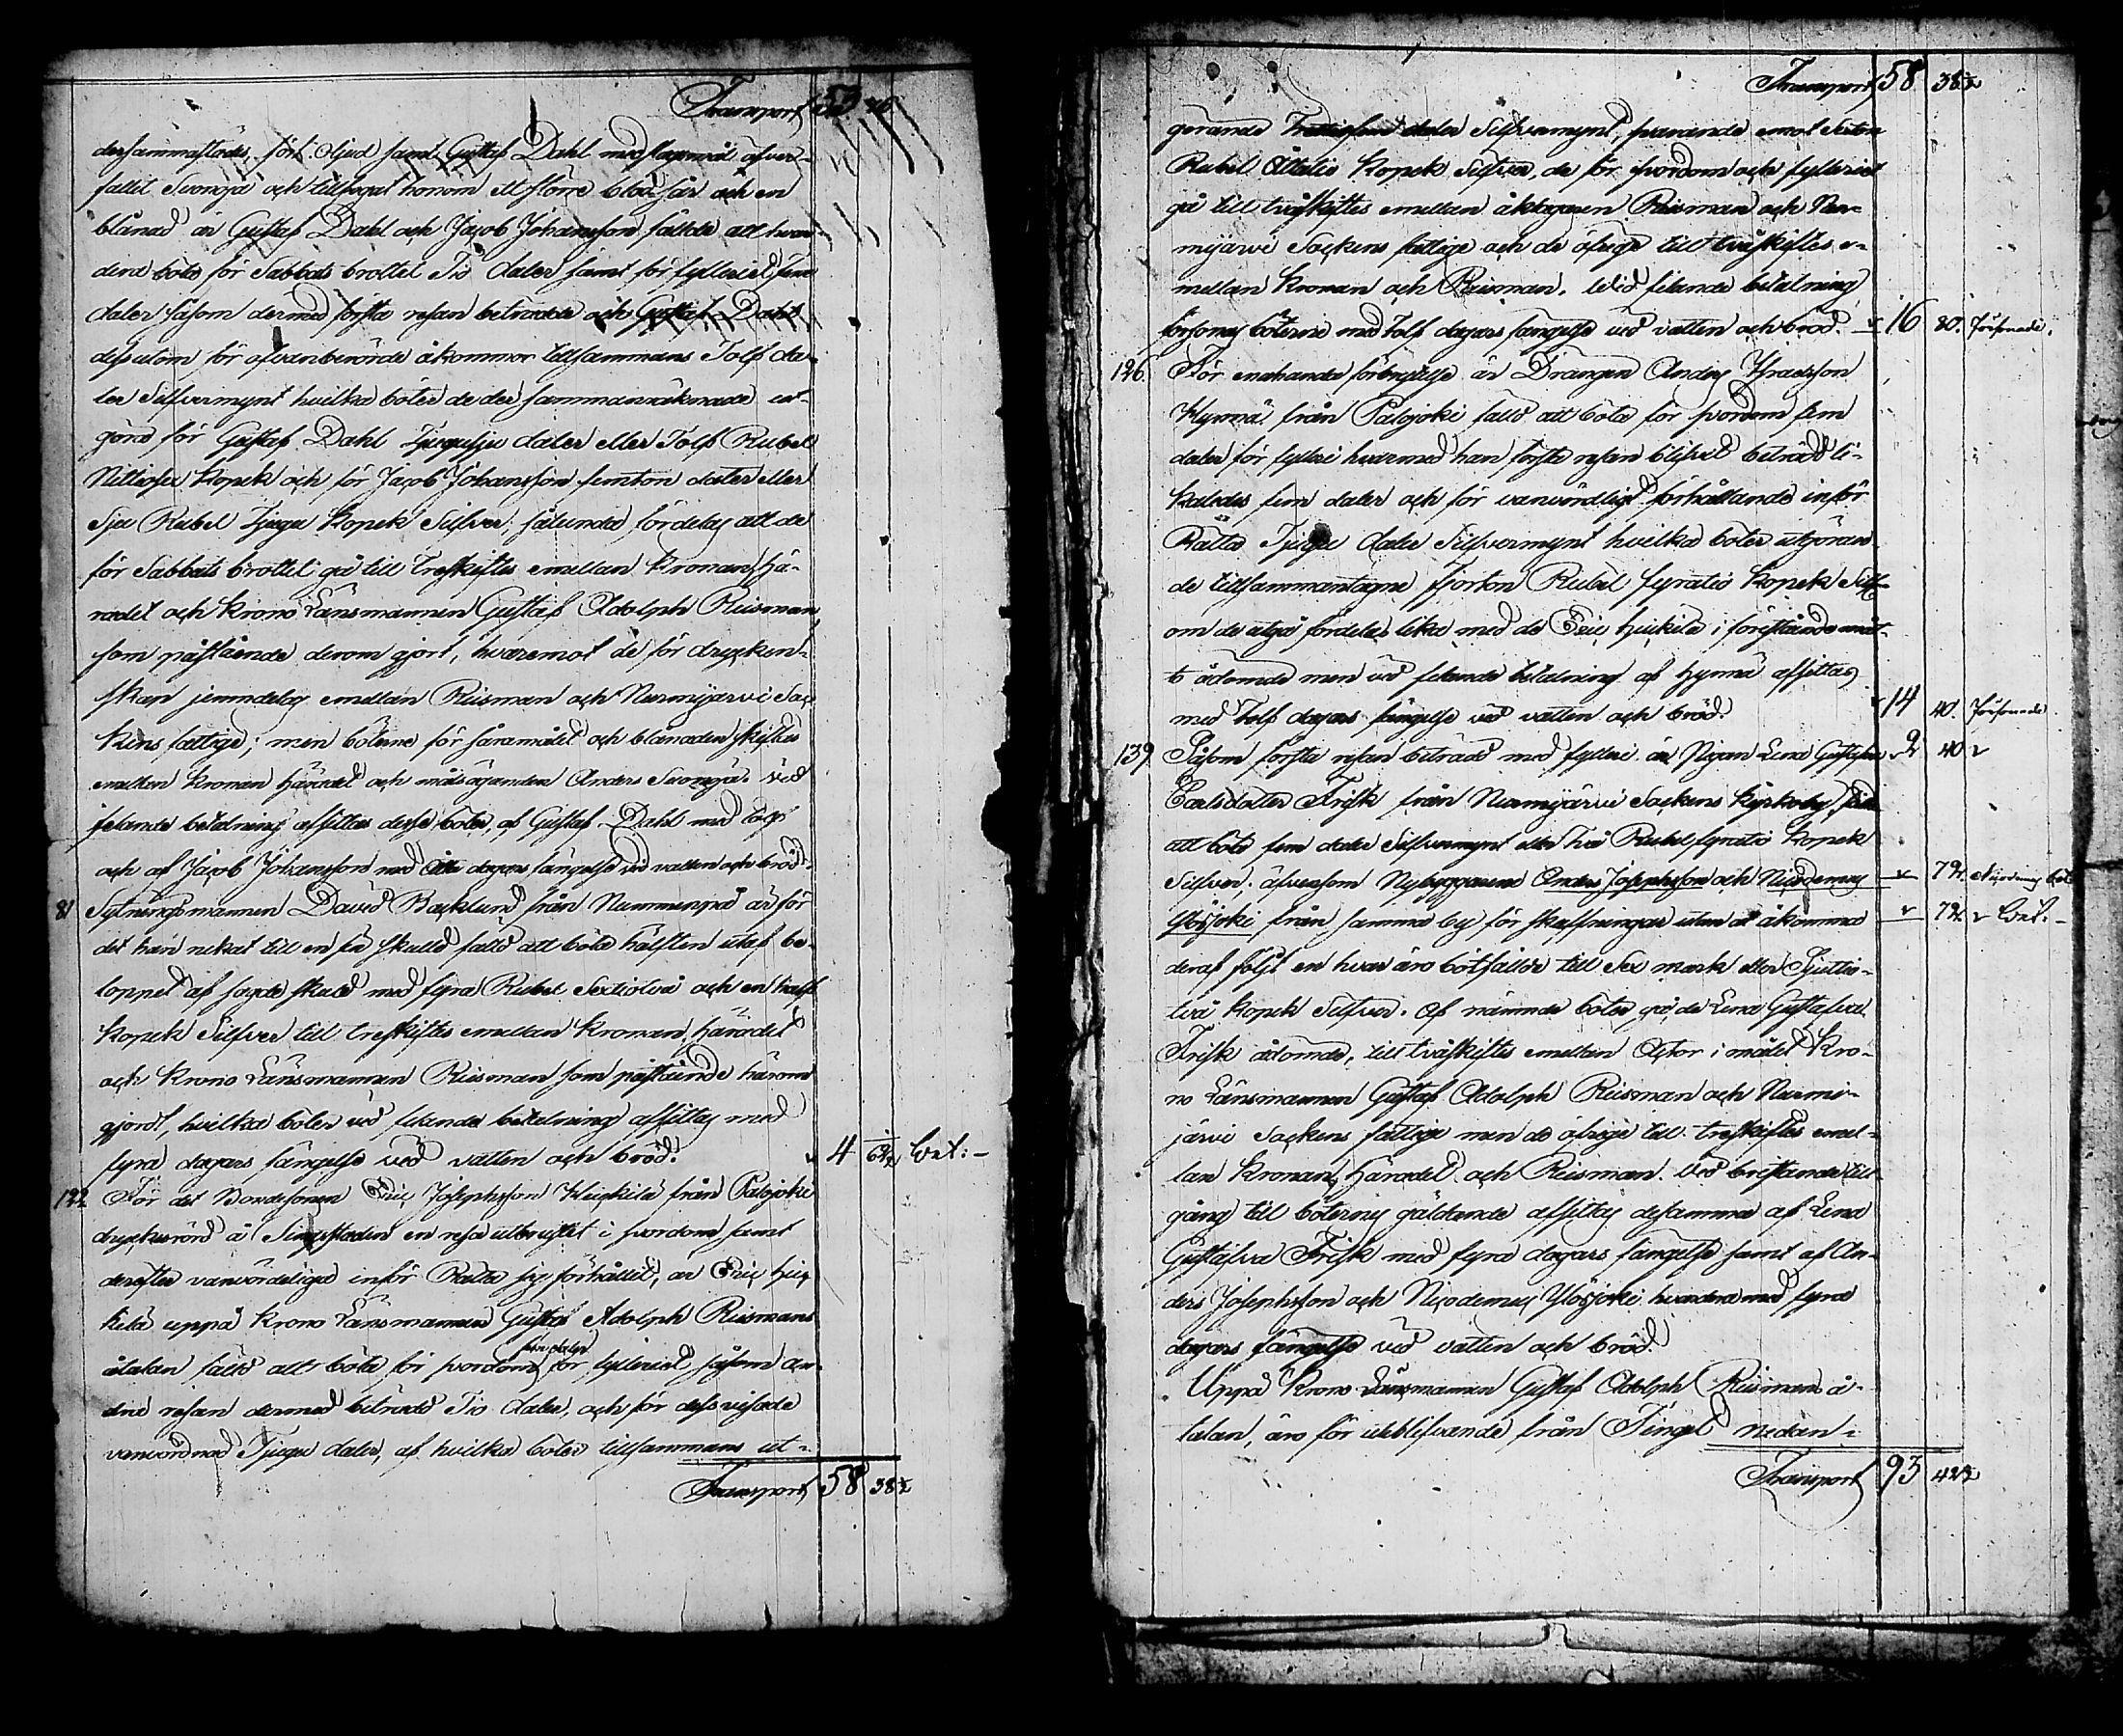 Transport 53 76
dersammastädes, fört oljud samt Gustaf Dahl med slagsmål öfver-
fallit Suonpä och tillfogat honom ett större blodsår och en
blånad är Gustaf Dahl och Jacob Johansson fällde att hvar-
dera böta för Sabbats brottet Tio daler samt för fylleriet fem
daler såsom dermed första resan beträdde och Gustaf Dahl
dessutom för ofvanberörde åkommor tillsammans Tolf da-
ler Silfvermynt hvilka böter de der sammanräknade ut-
göra för Gustaf Dahl Tjugusju daler eller Tolf Rubel
Nittiosex Kopek och för Jacob Johansson femton daler eller
Sju Rubel Tjugu Kopek Silfver; sålunda fördelas att de
för Sabbats brottet gå till treskiftes emellan Kronan, Hä-
radet och Krono Länsmannen Gustaf Adolph Reisman,
som påstående derom gjort, hvaremot de för drycken-
skap jemndelas emellan Reisman och Nurmijärvi Soc-
kens fattige; men böterne för såramålet och blånaden skiftas
emellan Kronan Häradet och målsäganden Anders Suonpä. Vid
felande betalning afsittas desse böter, af Gustaf Dahl med tolf
och af Jacob Johansson med åtta dagars fängelse vid vatten och bröd.
81 Sytningsmannen David Backlund från Nummenpä är för
det han nekat till en sin skuld fälld att böta hälften utaf be-
loppet af sagde skuld med fyra Rubel Sextiotvå och en half
Kopek Silfver till treskiftes emellan Kronan, Häradet
och Krono Länsmannen Reisman som påstående härom
gjort, hvilka böter vid felande betalning afsittas med
fyra dagars fängelse vid vatten och bröd. 4 62½ bet: –
122 För det Bondesonen Eric Josephsson Heickilä från Palojoki
druckenrörd å Tingsstaden en resa utbrustit i svordom samt
derefter vanvördeliga inför Rätta sig förhållit, är Eric Heic-
kilä uppå Krono Länsmannen Gustaf Adolph Reismans
åtalan fälld att böta för svordom fem daler för fylleriet såsom an-
dra resan dermed beträdd Tio daler, och för dess visade
vanvördnad Tjugu daler, af hvilka böter tillsammans ut-
Transport 58 38½
Transport 58 38½
görande Trettiofem daler Silfvermynt, svarande emot Sexton
Rubel Åttatio Kopek Silfver, de för svordom och fylleriet
gå till tvåskiftes emellan åklagaren Reisman och Nur-
mijärvi Sockens fattige och de öfrige till tvåskiftes e-
mellan Kronan och Reisman. Wid felande betalning
försonas böterne med Tolf dagars fängelse vid vatten och bröd. 16 80. försonade.
126. För enahanda förbrytelse är Drängen Anders Thomasson
Hyrmä från Palojoki fälld att böta för svordom fem
daler för fylleri hvarmed han första resan blifvit beträdd li-
kaledes fem daler och för vanvördligt förhållande inför
Rätta Tjugu daler Silfvermynt hvilka böter utgöran-
de tillsammantagne fjorton Rubel fyratio Kopek Silf-
om de utgå fördelas lika med de Eric Heickilä i förestående mål
ådömde men vid felande betalning af Hyrmä afsittas
med Tolf dagars fängelse vid vatten och bröd. 14 40. försonade
139. Såsom första resan beträdd med fylleri är Pigan Lena Gustafva 2 40
Carlsdotter Frisk från Nurmijärvi Sockens Kyrkoby, fälld
att böta fem daler Silfvermynt eller Två Rubel fyratio Kopek
Silfver. äfvensom Nybyggarne Anders Josephsson och Nicodemus 72.
Ylösjoki från samma by för skuffningar utan at åkomma 72. bet: –
deraf följt en hvar äro bötfällde till Sex mark eller Sjuttio-
två Kopek Silfver. Af nämnde böter gå, de Lena Gustafva
Frisk ådömde, till tvåskiftes emellan Actor i målet Kro-
no Länsmannen Gustaf Adolph Reisman och Nurmi-
järvi Sockens fattige men de öfrige till treskiftes emel-
lan Kronan, Häradet och Reisman. Vid bristande till-
gång till böternes gäldande afsittas desamma af Lena
Gustafva Frisk med fyra dagars fängelse samt af An-
ders Josephsson och Nicodemus Ylösjoki hvardera med fyra
dagars fängelse vid vatten och bröd.
Uppå Krono Länsmannen Gustaf Adolph Reismans å-
talan, äro för uteblifvande från Tinget nedan-
Transport 93 42½